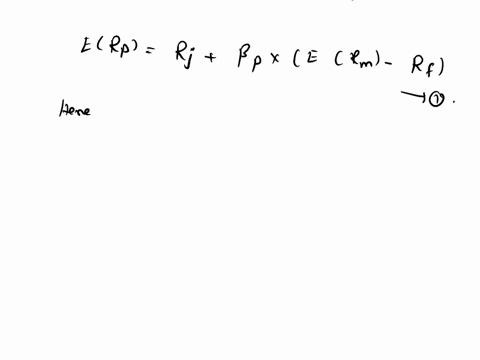 E(Rp) = Rj + βp × (E (Rm) - Rf)
→ ①.
Here